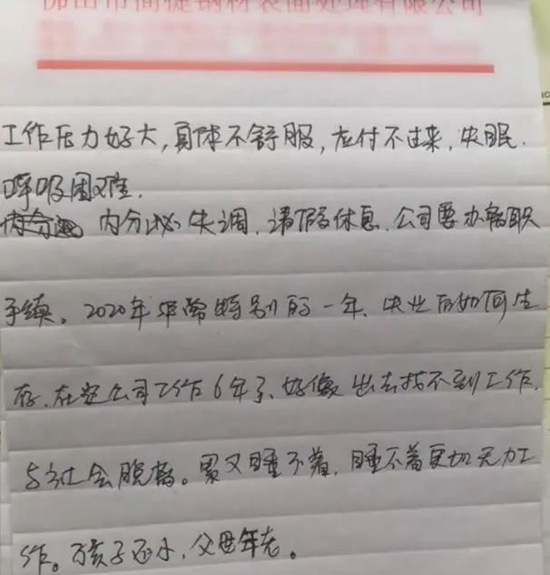 佛山市简捷钢材表面处理有限公司
工作压力好大,身体不舒服,应付不过来,失眠.
呼吸困难.
内分泌失调,请假休息,公司要办辞职
手续。2020年非常特别的一年、失业后如何生
存,在这公司工作6年了、好像出去找不到工作,
与社会脱轨。累又睡不着,睡不着更加无力工
作。孩子还小,父母年老。